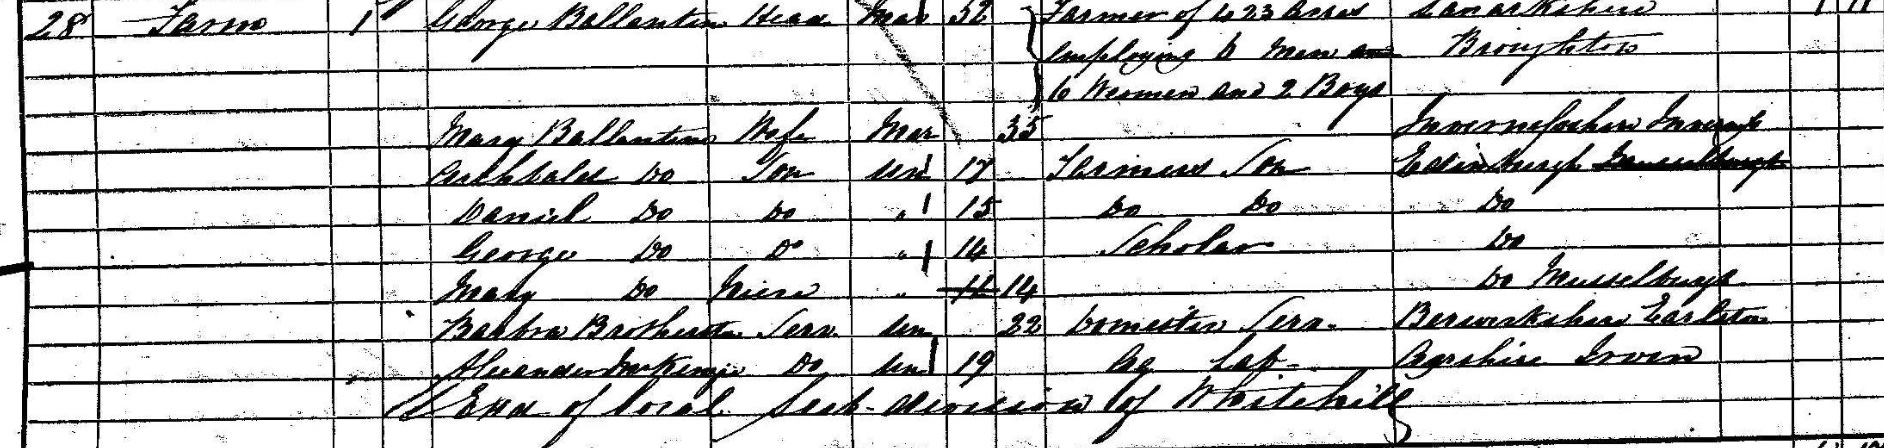 28 Farm 1 George Ballantine Head Mar 52 Farmer of 423 Acres Lanarkshire
employing 6 Men and Broughton
6 Women and 2 Boys
Mary Ballantine Wife Mar 35 Invernesshire Inverness
Archbald Do Son Un 17 Farmers Son Edinburgh
Daniel Do Do " 15 Do Do Do
George Do Do " 14 Scholar Do
Mary Do Niece " 14 14 Do Musselburgh
Barbra Brotherston Serv. Un 22 Domestic Serv. Berwickshire Earlston
Alexander McKenzie Do Un 19 Ag Lab Ayrshire Irvin
End of local Sub-division of Whitehill